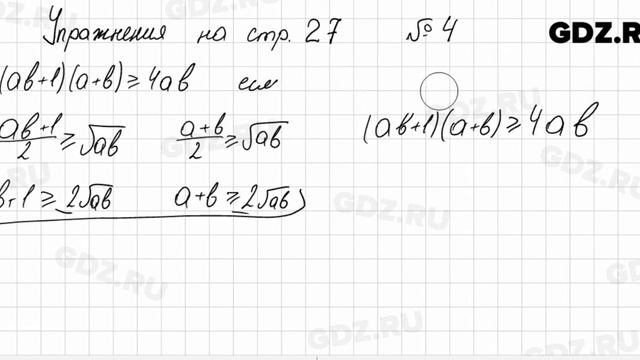 Упражнения на стр. 27 № 4
GDZ.RU
(ab+1)(a+b)≥4ab если
ab+1/2 ≥ √ab a+b/2 ≥ √ab
(ab+1)(a+b)≥4ab
b+1 ≥ 2√ab a+b ≥ 2√ab
GDZ.RU
GDZ.RU
GDZ.RU
GDZ.RU
GDZ.RU
GDZ.RU